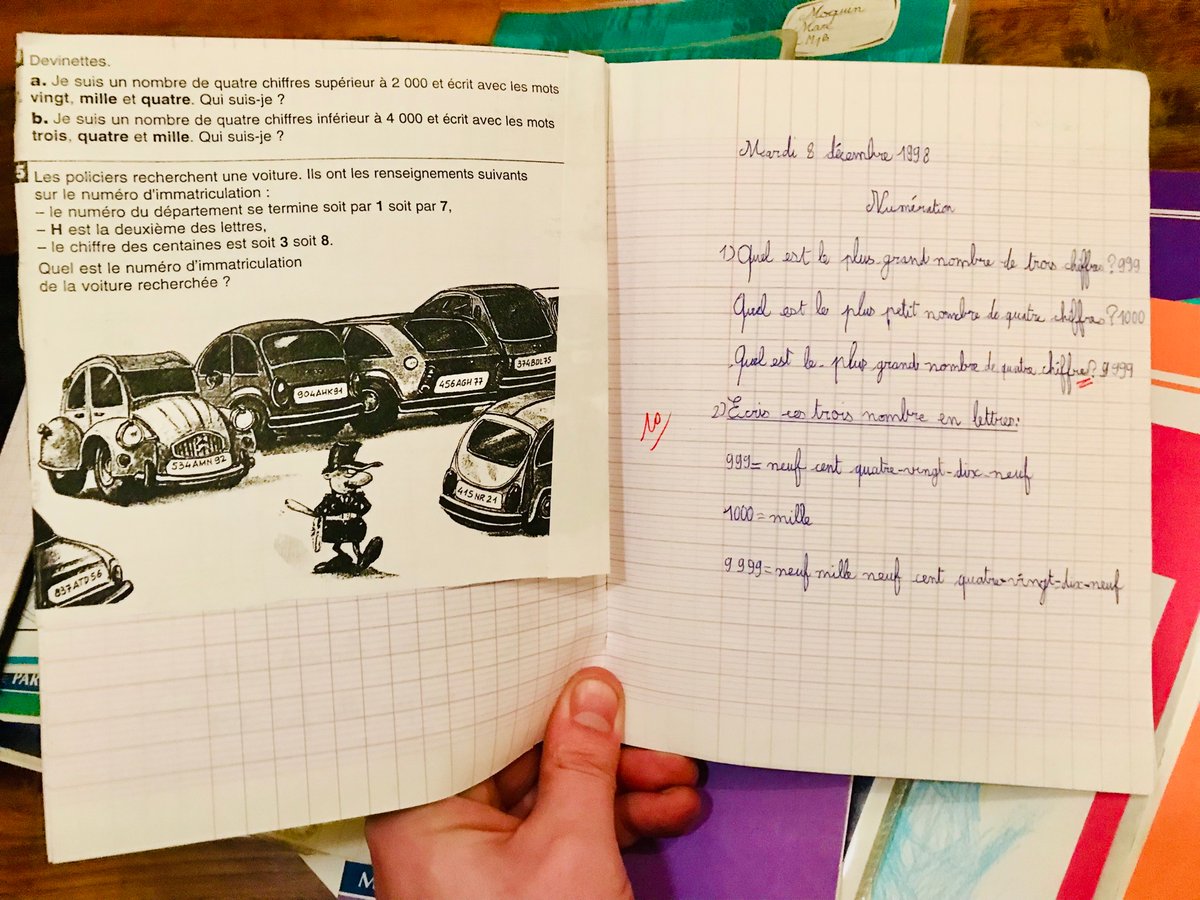 Moquin
Marc
Devinettes.
a. Je suis un nombre de quatre chiffres supérieur à 2 000 et écrit avec les mots
vingt, mille et quatre. Qui suis-je ?
b. Je suis un nombre de quatre chiffres inférieur à 4 000 et écrit avec les mots
trois, quatre et mille. Qui suis-je ?
5 Les policiers recherchent une voiture. Ils ont les renseignements suivants
sur le numéro d'immatriculation :
– le numéro du département se termine soit par 1 soit par 7,
– H est la deuxième des lettres,
– le chiffre des centaines est soit 3 soit 8.
Quel est le numéro d'immatriculation
de la voiture recherchée ?
374BDL75
456AGH 77
904AHK91
534AMN 92
415NR 21
837ATD56
PAR
M
Mardi 8 décembre 1998
Numération
1) Quel est le plus grand nombre de trois chiffres ? 999
Quel est le plus petit nombre de quatre chiffres ? 1000
Quel est le plus grand nombre de quatre chiffres ? 9999
10
2) Ecris ces trois nombre en lettres:
999 = neuf cent quatre-vingt-dix-neuf
1000 = mille
9999 = neuf mille neuf cent quatre-vingt-dix-neuf